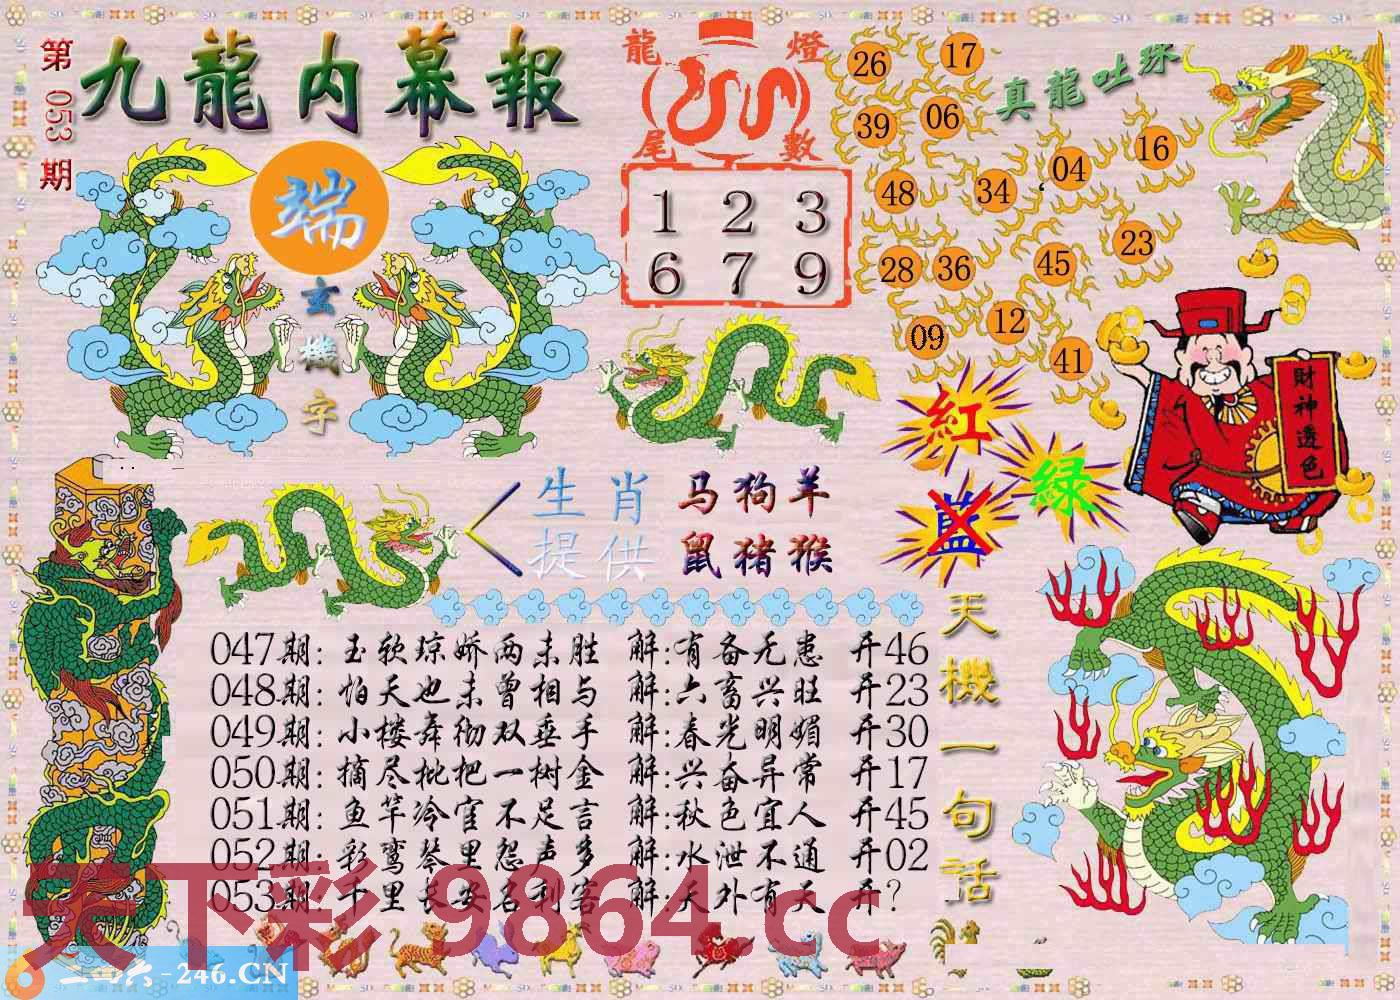 第053期
九龍内幕報
端
玄機字
龍燈
尾數
1 2 3
6 7 9
真龍吐珠
26 17
39 06
48 34 04 16
28 36 45 23
09 12 41
財神透色
紅
绿
藍
生肖 马狗羊
提供 鼠猪猴
天機一句話
047期: 玉软琼娇两未胜 解:有备无患 开46
048期: 怕天也未曾相与 解:六畜兴旺 开23
049期: 小楼舞彻双垂手 解:春光明媚 开30
050期: 摘尽枇杷一树金 解:兴奋异常 开17
051期: 鱼竿冷官不足言 解:秋色宜人 开45
052期: 彩鸾琴里怨声多 解:水泄不通 开02
053期: 千里长安名利客 解:天外有天 开?
天下彩 9864.cc
二四六-246.CN